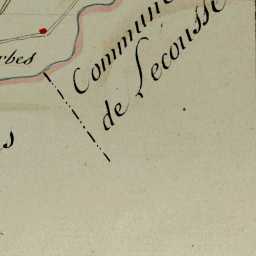 Commune
de Lecousse
rbes
s